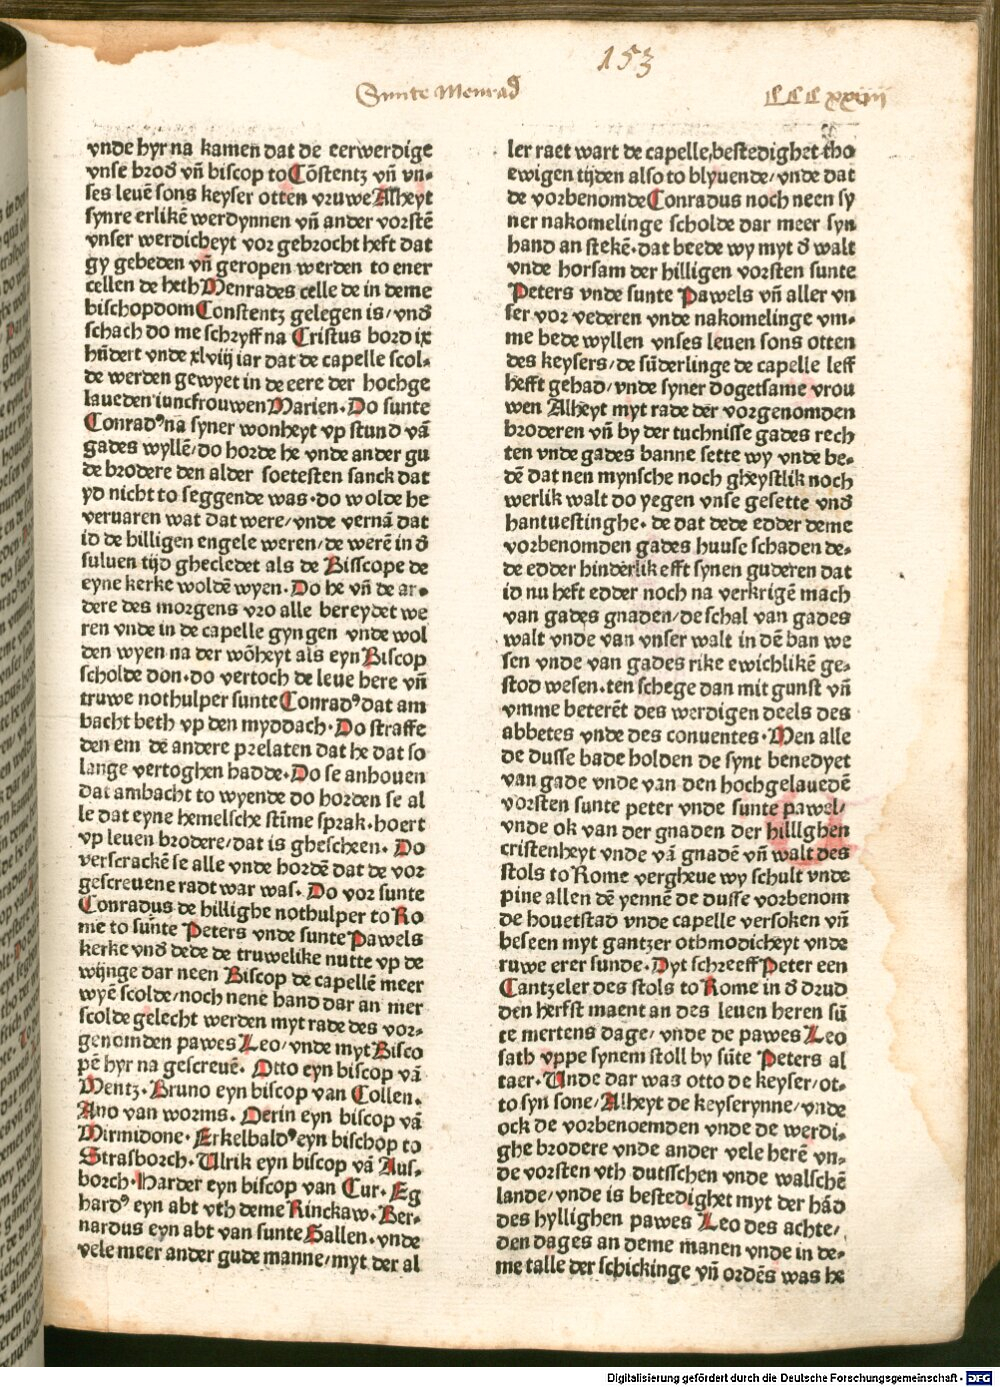 153
Sunte Menrad
CCCxxiiii
vnde hyr na kamen dat de eerwerdige
vnse brod vñ biscop to Cõstentz vñ vn⸗
ses leuẽ sons keyser otten vruwe Alheyt
synre erlikẽ werdynnen vñ ander vorstẽ
vnser werdicheyt vor gebrocht heft dat
gy gebeden vñ geropen werden to ener
cellen de heth Menrades celle de in deme
bischopdom Constentz gelegen is/vnd
schach do me schryff na Cristus bord ix
hũdert vnde xlviij iar dat de capelle scol⸗
de werden gewyet in de eere der hochge
laueden iuncfrouwen Marien. Do sunte
Conradꝰ na syner wonheyt vp stund vã
gades wyllẽ/do horde he vnde ander gu
de brodere den alder soetesten sanck dat
yd nicht to seggende was. do wolde he
veruaren wat dat were/vnde vernã dat
id de hilligen engele weren/de werẽ in d
suluen tijd ghecledet als de Bisscope de
eyne kerke woldẽ wyen. Do he vñ de an⸗
dere des morgens vro alle bereydet we
ren vnde in de capelle gyngen vnde wol
den wyen na der wõheyt als eyn Biscop
scholde don. do vertoch de leue here vñ
truwe nothulper sunte Conradꝰ dat am
bacht beth vp den myddach. Do straffe
den em de andere prelaten dat he dat so
lange vertoghen hadde. Do se anhouen
dat ambacht to wyende do horden se al
le dat eyne hemelsche stũme sprak. hoert
vp leuen brodere/dat is ghescheen. Do
verscrackẽ se alle vnde hordẽ dat de vor
gescreuene radt war was. Do vor sunte
Conradus de hillighe nothulper to Ro
me to sũnte Peters vnde sunte Pawels
kerke vnd dede de truwelike nutte vp de
wijnge dar neen Biscop de capellẽ meer
wyẽ scolde/noch nene hand dar an mer
scolde gelecht werden myt rade des vor⸗
genomden pawes Leo/vnde myt Bisco
pẽ hyr na gescreuẽ. Otto eyn biscop vã
Mentz. Bruno eyn biscop van Collen.
Ano van worms. Derin eyn biscop vã
Mirmidone. Erkelbaldꝰ eyn bischop to
Strasborch. Ulrik eyn biscop vã Aus⸗
borch. Harder eyn biscop van Cur. Eg
hardꝰ eyn abt vth deme Rinckaw. Ber⸗
nardus eyn abt van sunte Gallen. vnde
vele meer ander gude manne/myt der al
ler raet wart de capelle bestedighet tho
ewigen tijden also to blyuende/vnde dat
de vorbenomde Conradus noch neen sy
ner nakomelinge scholde dar meer syn
hand an stekẽ. dat beede wy myt d walt
vnde horsam der hilligen vorsten sunte
Peters vnde sunte Pawels vñ aller vn
ser vor vederen vnde nakomelinge vm⸗
me bede wyllen vnses leuen sons otten
des keysers/de sũderlinge de capelle leff
hefft gehad/vnde syner dogetsame vrou
wen Alheyt myt rade der vorgenomden
broderen vñ by der tuchnisse gades rech
ten vnde gades banne sette wy vnde be⸗
dẽ dat nen mynsche noch gheystlik noch
werlik walt do yegen vnse gesette vnd
hantuestinghe. de dat dede edder deme
vorbenomden gades huuse schaden de⸗
de edder hinderlik efft synen guderen dat
id nu heft edder noch na verkrigẽ mach
van gades gnaden/de schal van gades
walt vnde van vnser walt in dẽ ban we
sen vnde van gades rike ewichlikẽ ge⸗
stod wesen. ten schege dan mit gunst vñ
vmme beterẽt des werdigen deels des
abbetes vnde des conuentes. Men alle
de dusse bade holden de synt benedyet
van gade vnde van den hochgelauedẽ
vorsten sunte peter vnde sunte pawel/
vnde ok van der gnaden der hilllghen
cristenheyt vnde vã gnadẽ vñ walt des
stols to Rome vergheue wy schult vnde
pine allen dẽ yennẽ de dusse vorbenom
de houetstad vnde capelle versoken vñ
beseen myt gantzer othmodicheyt vnde
ruwe erer sunde. Dyt schreeff Peter een
Cantzeler des stols to Rome in d drud
den herfst maent an des leuen heren sũ
te mertens dage/vnde de pawes Leo
sath vppe synem stoll by sũte Peters al
taer. Unde dar was otto de keyser/ot⸗
to syn sone/Alheyt de keyserynne/vnde
ock de vorbenoemden vnde de werdi⸗
ghe brodere vnde ander vele herẽ vn⸗
de vorsten vth dutsschen vnde walschẽ
lande/vnde is bestedighet myt der hãd
des hyllighen pawes Leo des achte/
den dages an deme manen vnde in de⸗
me talle der schickinge vñ ordẽs was he
Digitalisierung gefördert durch die Deutsche Forschungsgemeinschaft - DFG